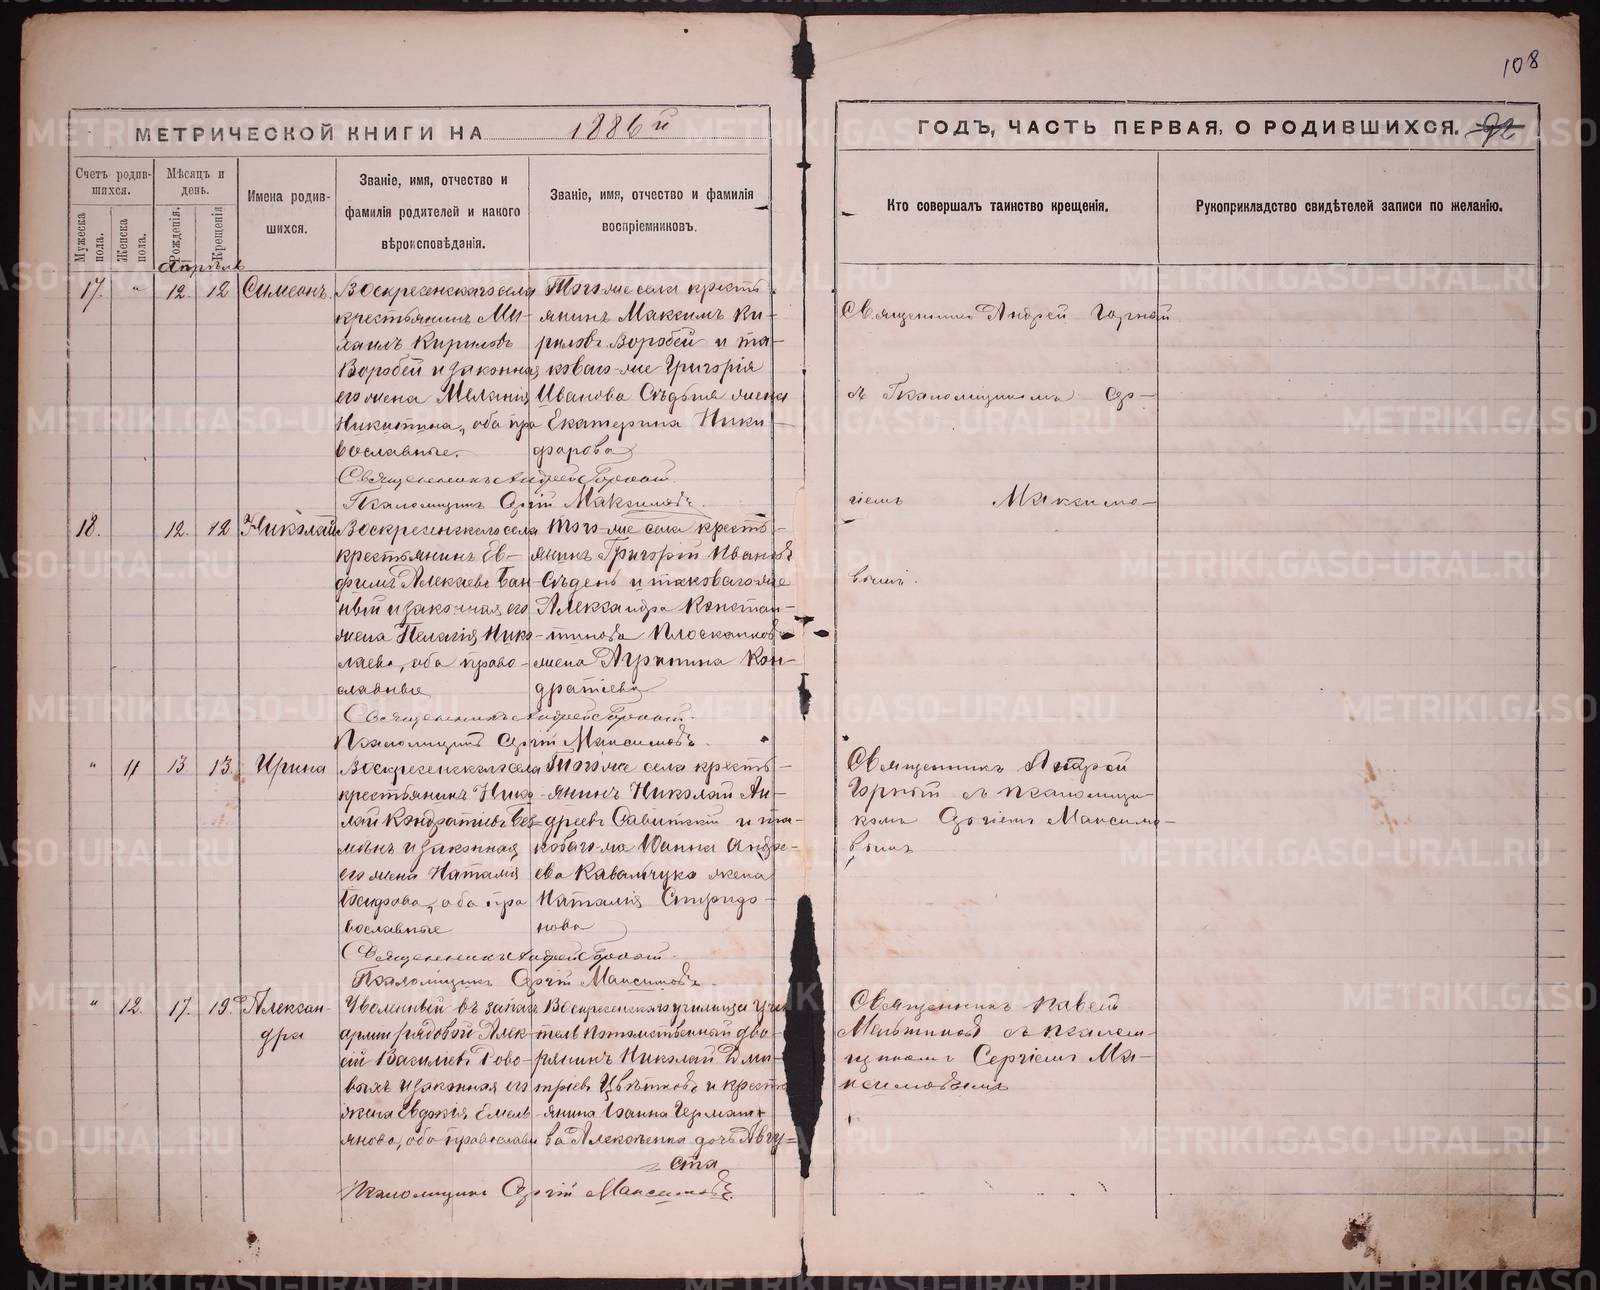 108
МЕТРИЧЕСКОЙ КНИГИ НА 1886й
ГОДЪ, ЧАСТЬ ПЕРВАЯ, О РОДИВШИХСЯ. 92
Счетъ родив-
шихся.
Мужеска
пола.
Женска
пола.
Мѣсяцъ и
день.
Рожденія.
Крещенія
Имена родив-
шихся.
Званіе, имя, отчество и
фамилія родителей и какого
вѣроисповѣданія.
Званіе, имя, отчество и фамилія
воспріемниковъ.
Кто совершалъ таинство крещенія.
Рукоприкладство свидѣтелей записи по желанію.
Апрѣль
17. " 12. 12 Симеонъ.
Воскресенскаго села
крестьянинъ Ми-
хаилъ Кириловъ
Воробей и законная
его жена Меланія
Никитина, оба пра
вославные.
Того-же села кресть
янинъ Максимъ Ки-
риловъ Воробей и та-
коваго-же Григорія
Иванова Съдыня жена
Екатерина Ники-
форова
Священникъ Андрей Горный
Псаломщикъ Сергій Максимовъ.
Священникъ Андрей Горный
съ Псаломщикомъ Сер-
гіемъ Максимо-
вымъ.
18. 12. 12 Николай
Воскресенскаго села
крестьянинъ Ев-
фимъ Алексѣевъ Бан-
ный и законная его
жена Пелагія Нико-
лаева, оба право-
славные
Того-же села кресть-
янинъ Григорій Ивановъ
Съдень и таковаго-же
Александра Констан-
тинова Плоскаинова
жена Агрипина Кон-
дратіева
Священникъ Андрей Горный.
Псаломщикъ Сергій Максимовъ.
" 11 13 13. Ирина
Воскресенскаго села
крестьянинъ Нико-
лай Кондратіевъ
и законная
его жена Наталія
оба пра
вославные
Того же села кресть-
янинъ Николай Ан-
дреевъ Савитскій и та-
коваго-же Іоанна Андре-
ева Кавальчука жена
Наталія Спиридо-
нова
Священникъ Андрей Горный.
Псаломщикъ Сергій Максимовъ.
Священникъ Андрей
Горный съ псаломщи-
комъ Сергіемъ Максимо-
вымъ
" 12. 17. 19. Алексан-
дра
Уволенный въ запасъ
арміи рядовой Алек-
сій Василіевъ
и законная его
жена Евдокія Емель
янова, оба православн
Воскресенскаго училища учи
тель потомственный дво-
рянинъ Николай Дми-
тріевъ Цвѣтковъ и кресть
янина Іоанна
дочь Авгу=
ста
Псаломщикъ Сергій Максимовъ.
Священникъ Павелъ
съ псалом-
щикомъ Сергіемъ Ма-
ксимовымъ
METRIKI.GASO-URAL.RU